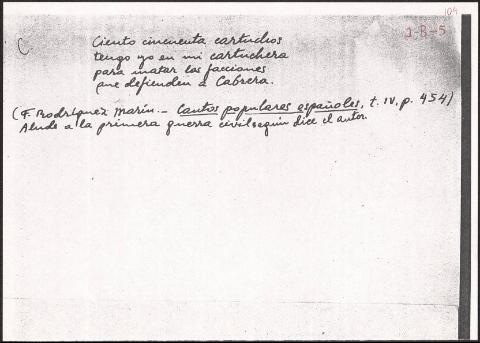 104
1-B-5
C
Ciento cincuenta cartuchos
tengo yo en mi cartuchera
para matar las facciones
que defienden a Cabrera.
(F. Rodríguez Marín.- Cantos populares españoles, t. IV, p. 454)
Alude a la primera guerra civil según dice el autor.